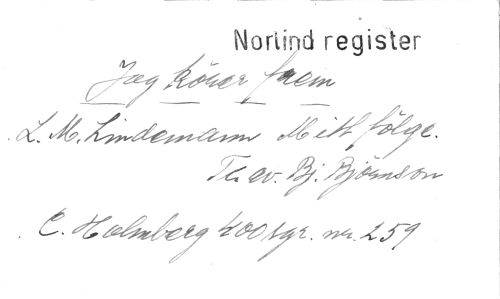 Norlind register
Jag körer frem
L. M. Lindemann Mitt följe.
T. av. Bj. Björnson
C. Holmberg 400 sgr. nr. 259